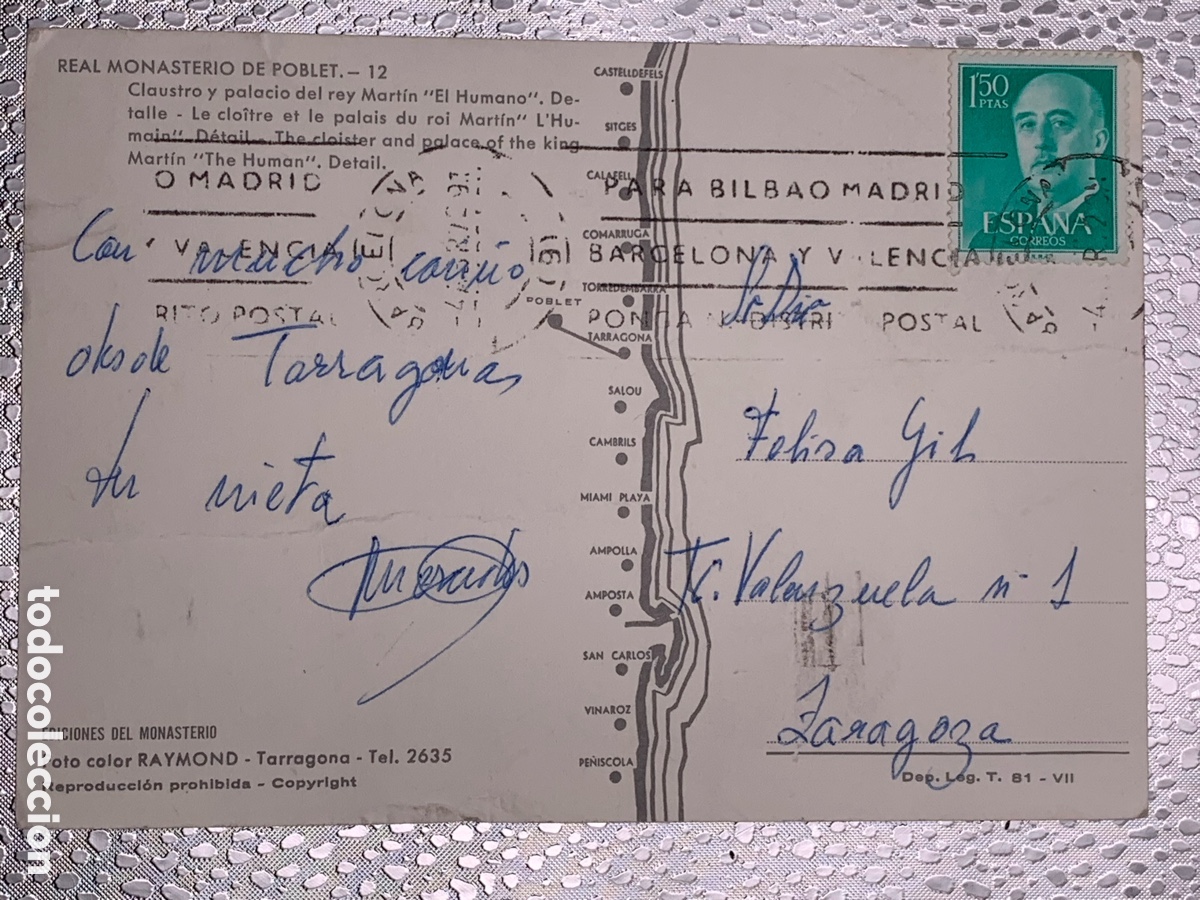 REAL MONASTERIO DE POBLET. — 12
Claustro y palacio del rey Martín "El Humano". De-
talle - Le cloître et le palais du roi Martín" L'Hu-
main". Détail. - The cloister and palace of the king
Martín "The Human". Detail.
O MADRID
VALENCIA
RITO POSTAL
PARA BILBAO MADRID
BARCELONA Y V LENCIA
PONGA DISTRI POSTAL
1'50
PTAS
ESPAÑA
CORREOS
Con mucho cariño
desde Tarragona
tu nieta
CASTELLDEFELS
SITGES
CALAFELL
COMARRUGA
TORREDEMBARRA
POBLET
TARRAGONA
SALOU
CAMBRILS
MIAMI PLAYA
AMPOLLA
AMPOSTA
SAN CARLOS
VINAROZ
PEÑISCOLA
Felisa Gil
Valenzuela nº 1
Zaragoza
EDICIONES DEL MONASTERIO
Foto color RAYMOND - Tarragona - Tel. 2635
Reproducción prohibida - Copyright
Dep. Leg. T. 81 - VII
todocoleccion